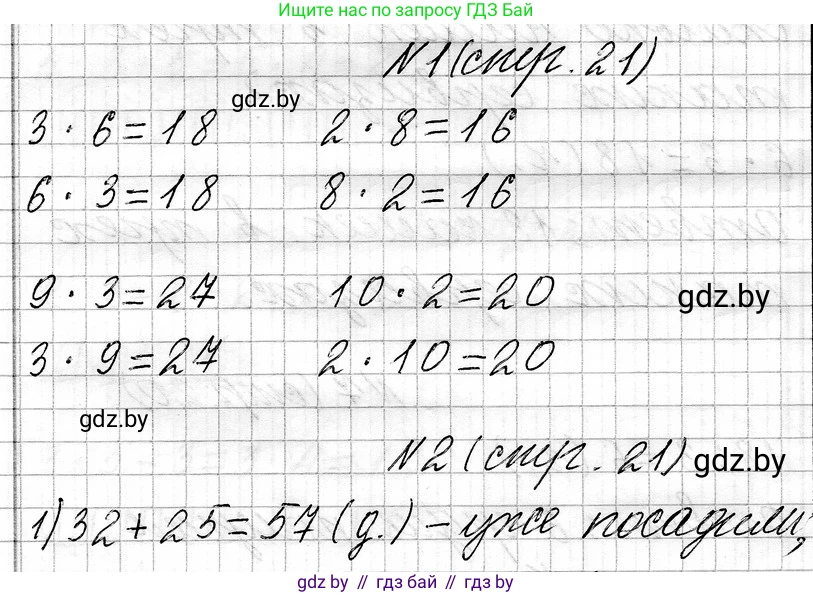 Ищите нас по запросу ГДЗ Бай
№1 (стр. 21)
gdz.by
3 · 6 = 18 2 · 8 = 16
6 · 3 = 18 8 · 2 = 16
9 · 3 = 27 10 · 2 = 20
gdz.by
3 · 9 = 27 2 · 10 = 20
gdz.by
№2 (стр. 21) gdz.by
1) 32 + 25 = 57 (д.) – уже посадили;
gdz.by // гдз бай // gdz.by